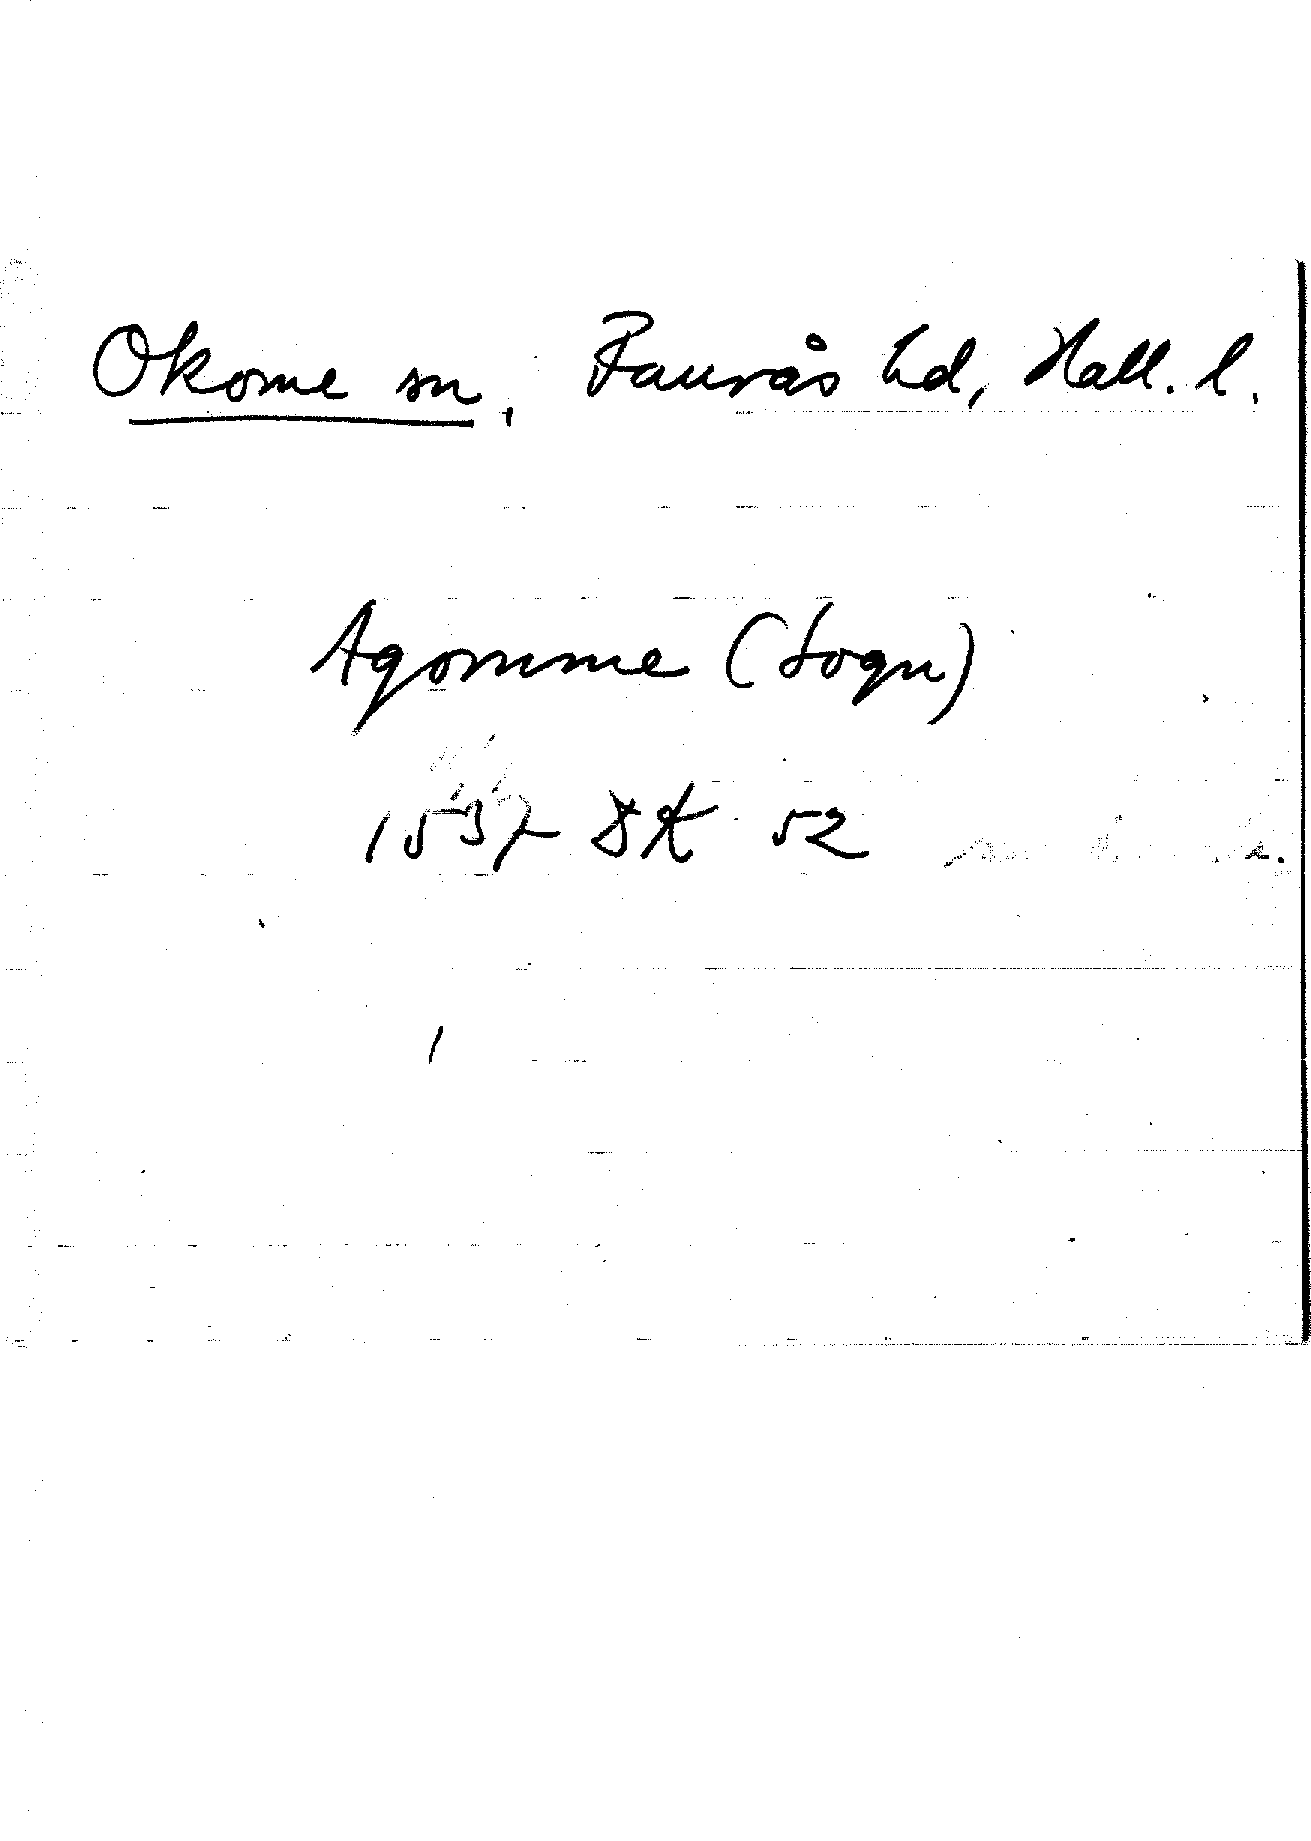 Okome sn, Faurås hd, Hall. l.
Agomme (Sogn)
1537 DK 52